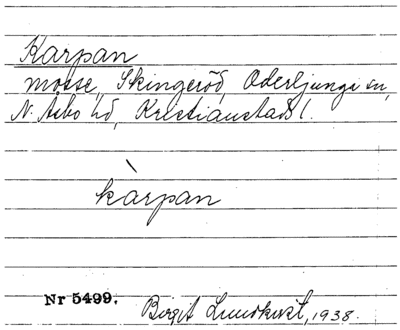 Karpan
mosse, Skingeröd, Oderljunga sn,
N. Åsbo hd, Kristianstads l.
kàrpan
Nr 5499.
Birgit Lundkvist, 1938.